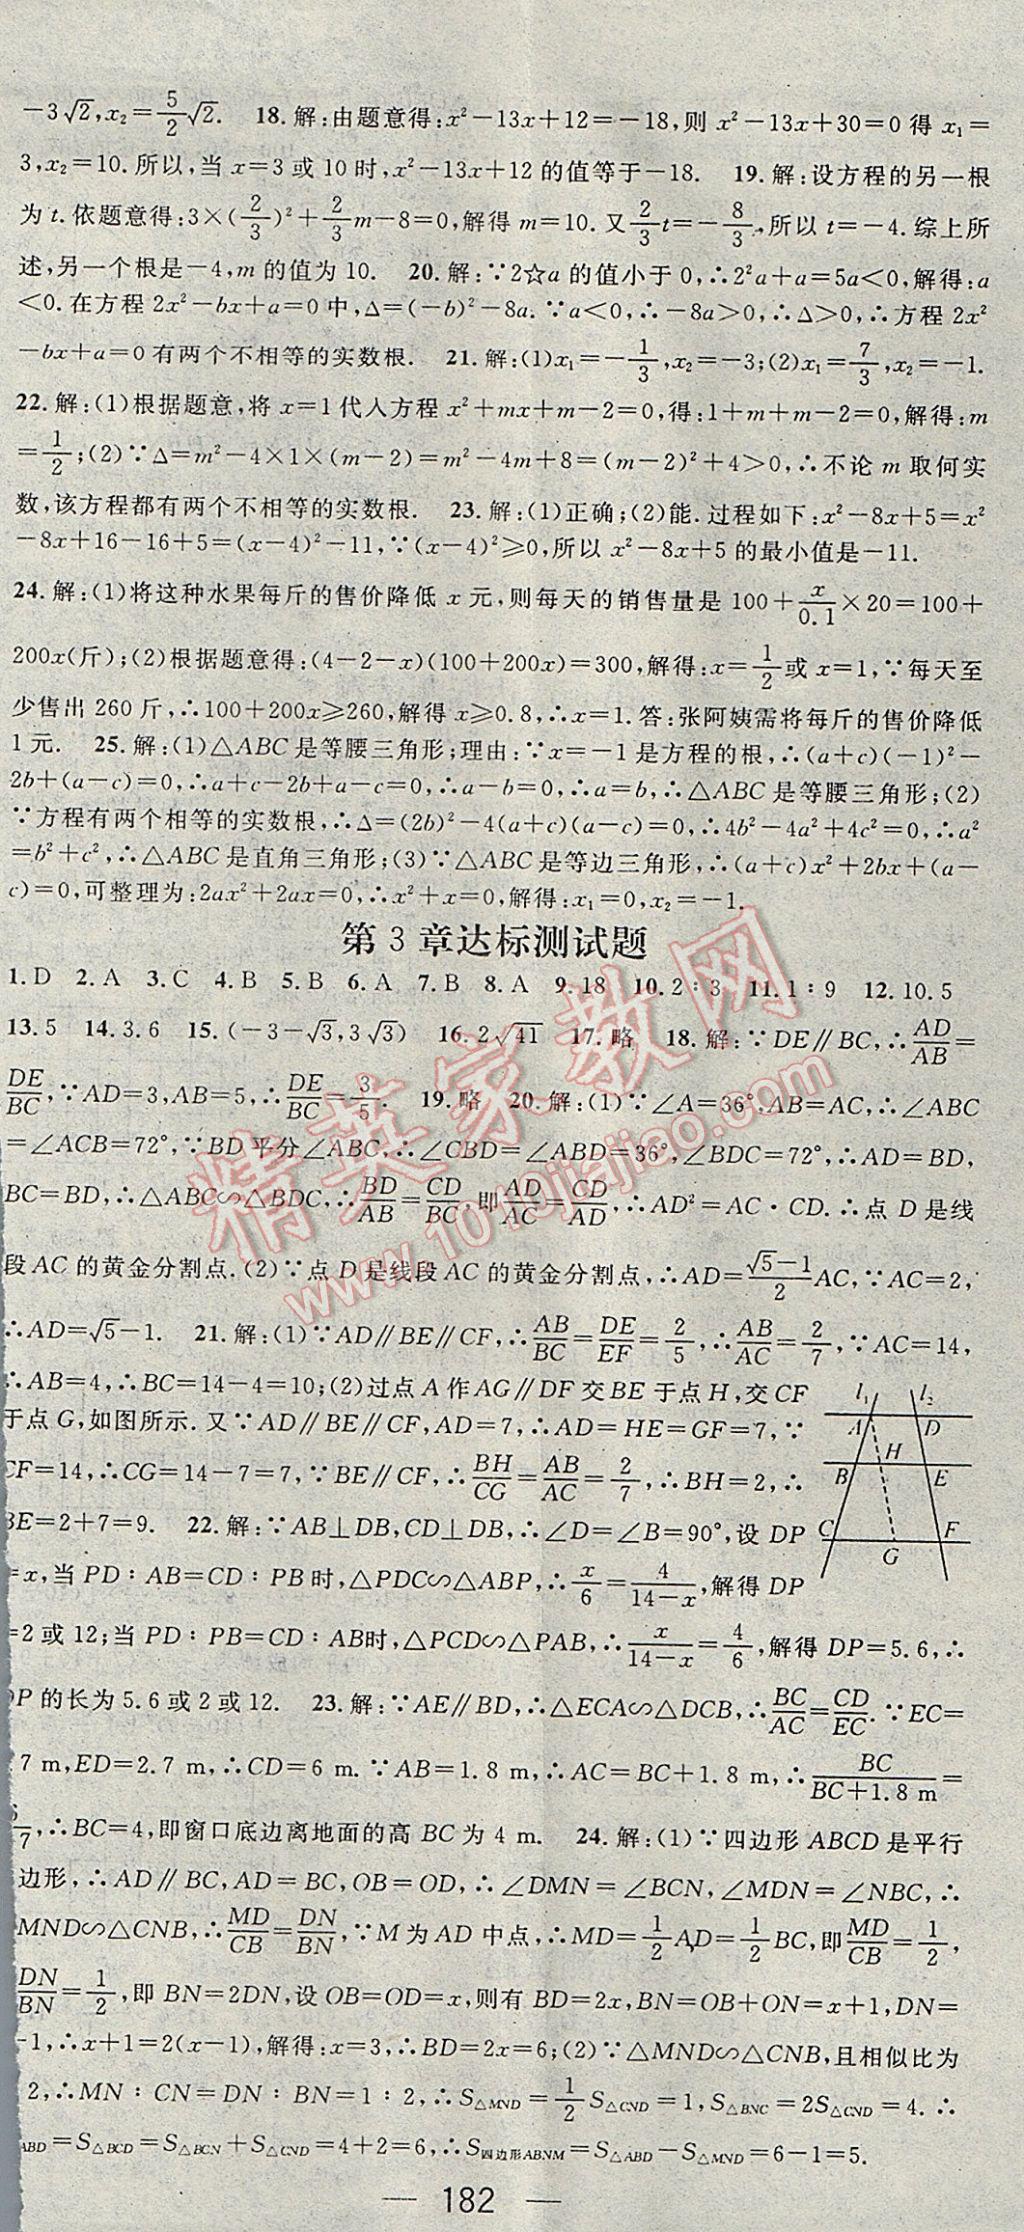 －3√2,x₂＝5/2√2. 18.解:由题意得:x²－13x＋12＝－18,则 x²－13x＋30＝0 得 x₁＝
3,x₂＝10.所以,当 x＝3 或 10 时,x²－13x＋12 的值等于－18. 19.解:设方程的另一根
为 t.依题意得:3×(2/3)²＋2/3m－8＝0,解得 m＝10.又 2/3t＝－8/3,所以 t＝－4.综上所
述,另一个根是－4,m 的值为 10. 20.解:∵2☆a 的值小于 0,∴2²a＋a＝5a＜0,解得:a
＜0.在方程 2x²－bx＋a＝0 中,Δ＝(－b)²－8a.∵a＜0,∴－8a＞0,∴Δ＞0,∴方程 2x²
－bx＋a＝0 有两个不相等的实数根. 21.解:(1)x₁＝－1/3,x₂＝－3;(2)x₁＝7/3,x₂＝－1.
22.解:(1)根据题意,将 x＝1 代入方程 x²＋mx＋m－2＝0,得:1＋m＋m－2＝0,解得:m
＝1/2;(2)∵Δ＝m²－4×1×(m－2)＝m²－4m＋8＝(m－2)²＋4＞0,∴不论 m 取何实
数,该方程都有两个不相等的实数根. 23.解:(1)正确;(2)能.过程如下:x²－8x＋5＝x²
－8x＋16－16＋5＝(x－4)²－11,∵(x－4)²≥0,所以 x²－8x＋5 的最小值是－11.
24.解:(1)将这种水果每斤的售价降低 x 元,则每天的销售量是 100＋x/0.1×20＝100＋
200x(斤);(2)根据题意得:(4－2－x)(100＋200x)＝300,解得:x＝1/2或 x＝1,∵每天至
少售出 260 斤,∴100＋200x≥260,解得 x≥0.8,∴x＝1.答:张阿姨需将每斤的售价降低
1 元. 25.解:(1)△ABC 是等腰三角形;理由:∵x＝－1 是方程的根,∴(a＋c)(－1)²－
2b＋(a－c)＝0,∴a＋c－2b＋a－c＝0,∴a－b＝0,∴a＝b,∴△ABC 是等腰三角形;(2)
∵方程有两个相等的实数根,∴Δ＝(2b)²－4(a＋c)(a－c)＝0,∴4b²－4a²＋4c²＝0,∴a²
＝b²＋c²,∴△ABC 是直角三角形;(3)∵△ABC 是等边三角形,∴(a＋c)x²＋2bx＋(a－
c)＝0,可整理为:2ax²＋2ax＝0,∴x²＋x＝0,解得:x₁＝0,x₂＝－1.
第 3 章达标测试题
1.D 2.A 3.C 4.B 5.B 6.A 7.B 8.A 9.18 10.2∶3 11.1∶9 12.10.5
13.5 14.3.6 15.(－3－√3,3√3) 16.2√41 17.略 18.解:∵DE∥BC,∴AD/AB＝
DE/BC,∵AD＝3,AB＝5,∴DE/BC＝3/5. 19.略 20.解:(1)∵∠A＝36°,AB＝AC,∴∠ABC
＝∠ACB＝72°,∵BD 平分∠ABC,∴∠CBD＝∠ABD＝36°,∠BDC＝72°,∴AD＝BD,
BC＝BD,∴△ABC∽△BDC,∴BD/AB＝CD/BC,即AD/AC＝CD/AD,∴AD²＝AC·CD.∴点 D 是线
段 AC 的黄金分割点.(2)∵点 D 是线段 AC 的黄金分割点,∴AD＝(√5－1)/2AC,∵AC＝2,
∴AD＝√5－1. 21.解:(1)∵AD∥BE∥CF,∴AB/BC＝DE/EF＝2/5,∴AB/AC＝2/7,∵AC＝14,
∴AB＝4,∴BC＝14－4＝10;(2)过点 A 作 AG∥DF 交 BE 于点 H,交 CF
于点 G,如图所示.又∵AD∥BE∥CF,AD＝7,∴AD＝HE＝GF＝7,∵
CF＝14,∴CG＝14－7＝7,∵BE∥CF,∴BH/CG＝AB/AC＝2/7,∴BH＝2,∴
BE＝2＋7＝9. 22.解:∵AB⊥DB,CD⊥DB,∴∠D＝∠B＝90°,设 DP
＝x,当 PD∶AB＝CD∶PB 时,△PDC∽△ABP,∴x/6＝4/(14－x),解得 DP
＝2 或 12;当 PD∶PB＝CD∶AB时,△PCD∽△PAB,∴x/(14－x)＝4/6,解得 DP＝5.6,∴
DP 的长为 5.6 或 2 或 12. 23.解:∵AE∥BD,∴△ECA∽△DCB,∴BC/AC＝CD/EC.∵EC＝
.7 m,ED＝2.7 m,∴CD＝6 m.∵AB＝1.8 m,∴AC＝BC＋1.8 m,∴BC/(BC＋1.8 m)＝
6/7,∴BC＝4,即窗口底边离地面的高 BC 为 4 m. 24.解:(1)∵四边形 ABCD 是平行
边形,∴AD∥BC,AD＝BC,OB＝OD,∴∠DMN＝∠BCN,∠MDN＝∠NBC,∴
MND∽△CNB,∴MD/CB＝DN/BN,∵M 为 AD 中点,∴MD＝1/2AD＝1/2BC,即MD/CB＝1/2,
DN/BN＝1/2,即 BN＝2DN,设 OB＝OD＝x,则有 BD＝2x,BN＝OB＋ON＝x＋1,DN＝
－1,∴x＋1＝2(x－1),解得:x＝3,∴BD＝2x＝6;(2)∵△MND∽△CNB,且相似比为
2,∴MN∶CN＝DN∶BN＝1∶2,∴S△MND＝1/2S△CND＝1,S△BNC＝2S△CND＝4.∴
ABD＝S△BCD＝S△BCN＋S△CND＝4＋2＝6,∴S四边形ABNM＝S△ABD－S△MND＝6－1＝5.
l₁ l₂
A D
H
B E
C F
G
精英家教网
www.1010jiajiao.com
— 182 —